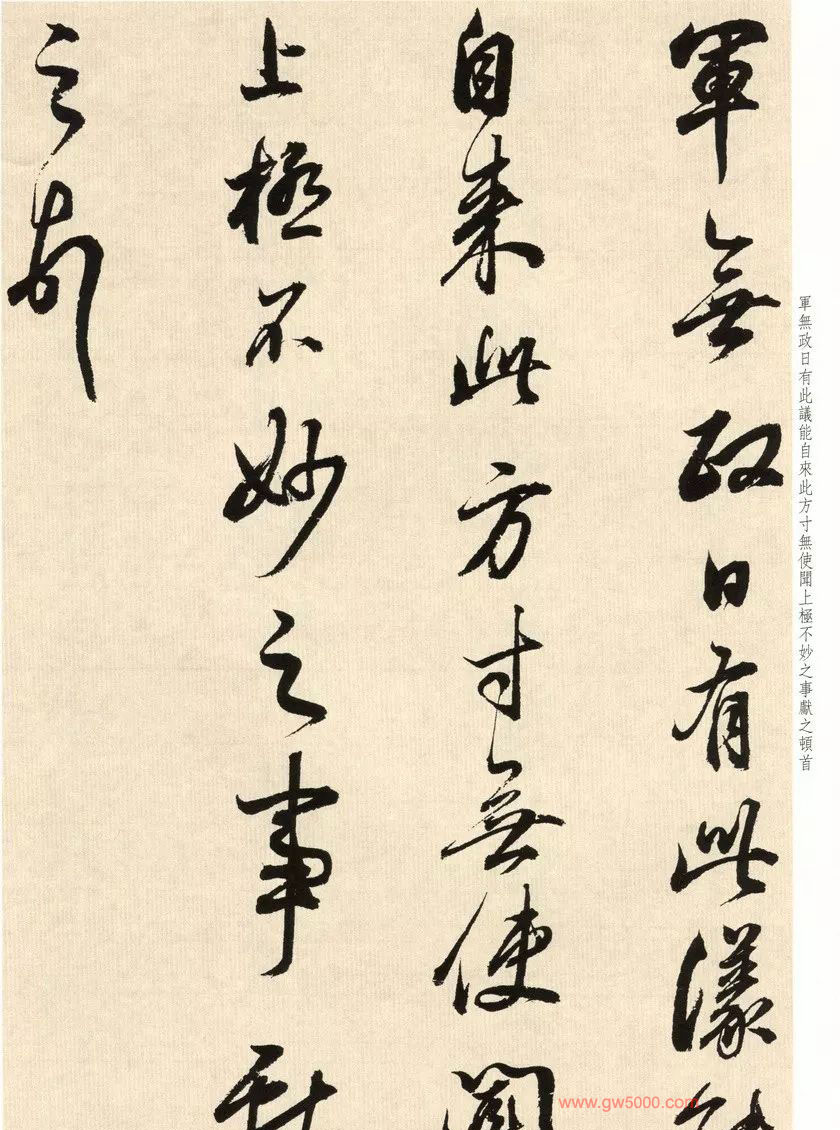 軍無政日有此議能
自來此方寸無使聞
上極不妙之事獻
之頓首
軍無政日有此議能自來此方寸無使聞上極不妙之事獻之頓首
www.gw5000.com